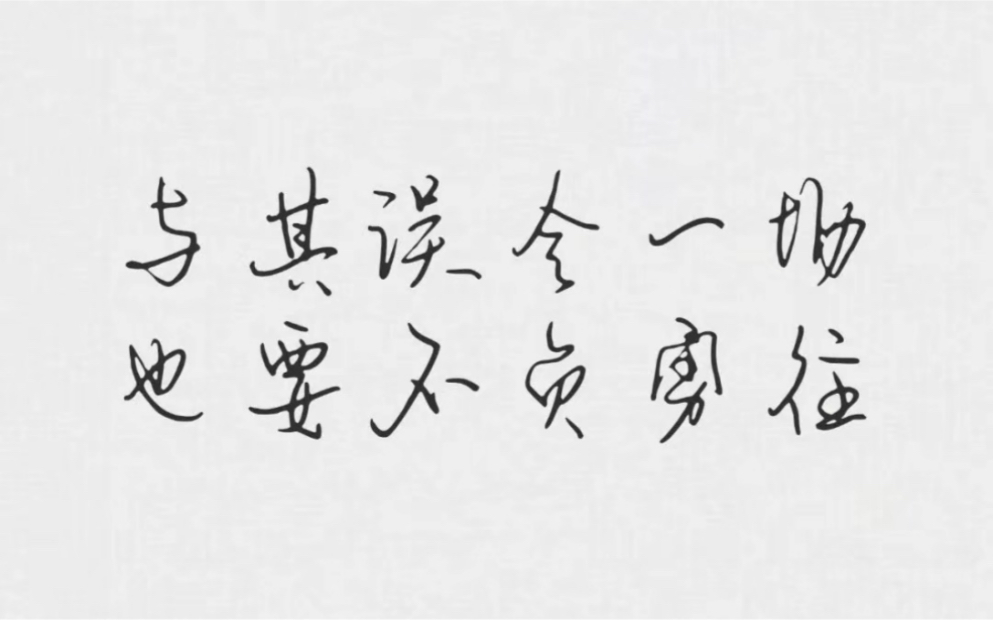 与其误会一场
也要不负勇往